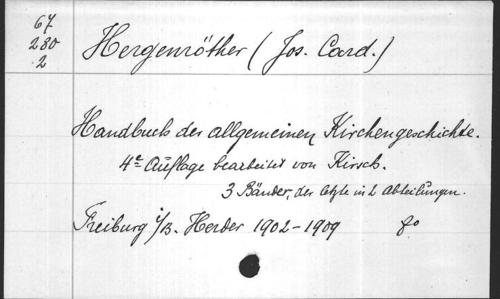 67
280
2
Hergenröther (Jos. Card.)
Handbuch der allgemeinen Kirchengeschichte.
4e Auflage bearbeitet von Kirsch.
3 Bänder, der letzte in 2 Abteilungen.
Freiburg i/B. Herder 1902-1909 8o